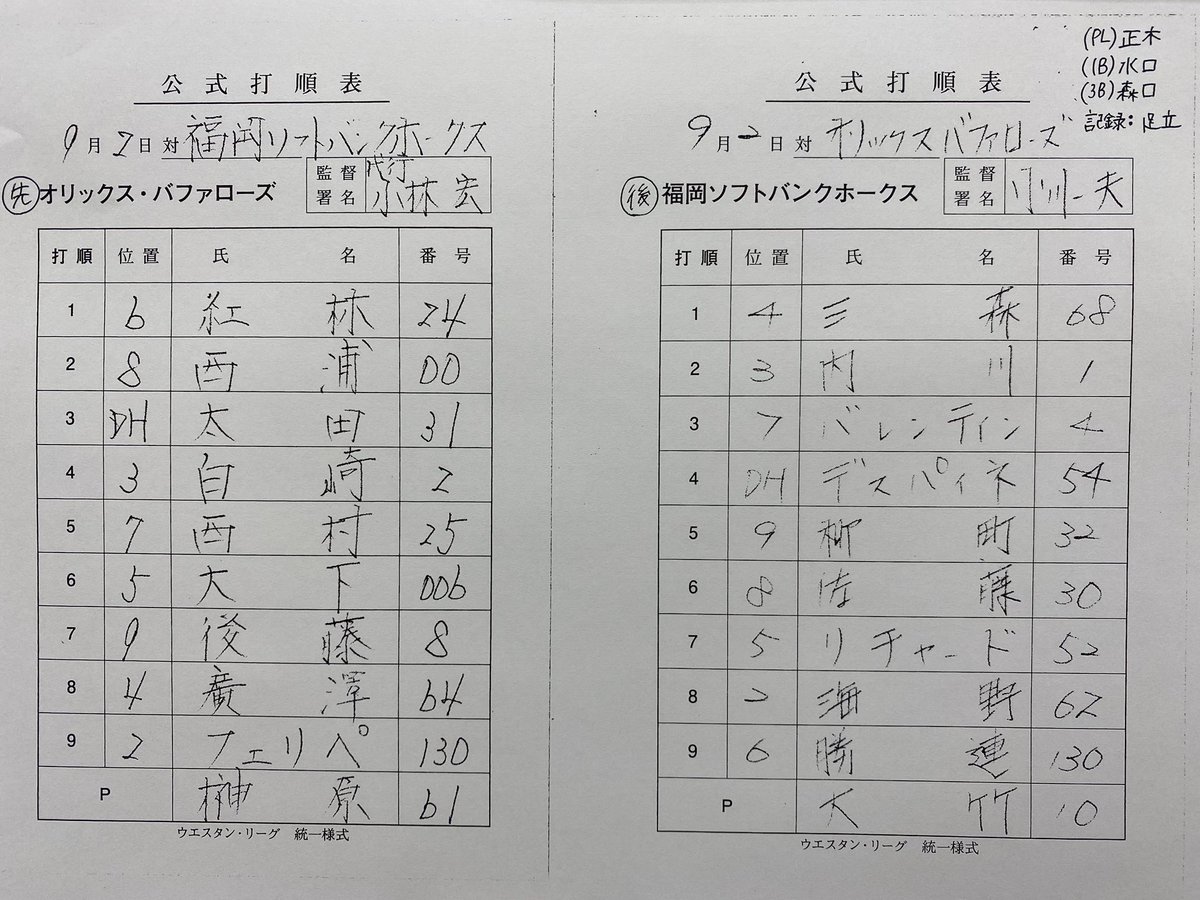 公式打順表
9月2日対 福岡ソフトバンクホークス
先 オリックス・バファローズ 監督署名 代行 小林宏
打順 位置 氏名 番号
1 6 紅林 24
2 8 西浦 00
3 DH 太田 31
4 3 白崎 2
5 7 西村 25
6 5 大下 006
7 9 後藤 8
8 4 廣澤 64
9 2 フェリペ 130
P 榊原 61
ウエスタン・リーグ 統一様式
(PL)正木
(1B)水口
(3B)森口
記録:足立
公式打順表
9月2日対 オリックスバファローズ
後 福岡ソフトバンクホークス 監督署名 小川一夫
打順 位置 氏名 番号
1 4 三森 68
2 3 内川 1
3 7 バレンティン 4
4 DH デスパイネ 54
5 9 柳町 32
6 8 佐藤 30
7 5 リチャード 52
8 2 海野 62
9 6 勝連 130
P 大竹 10
ウエスタン・リーグ 統一様式